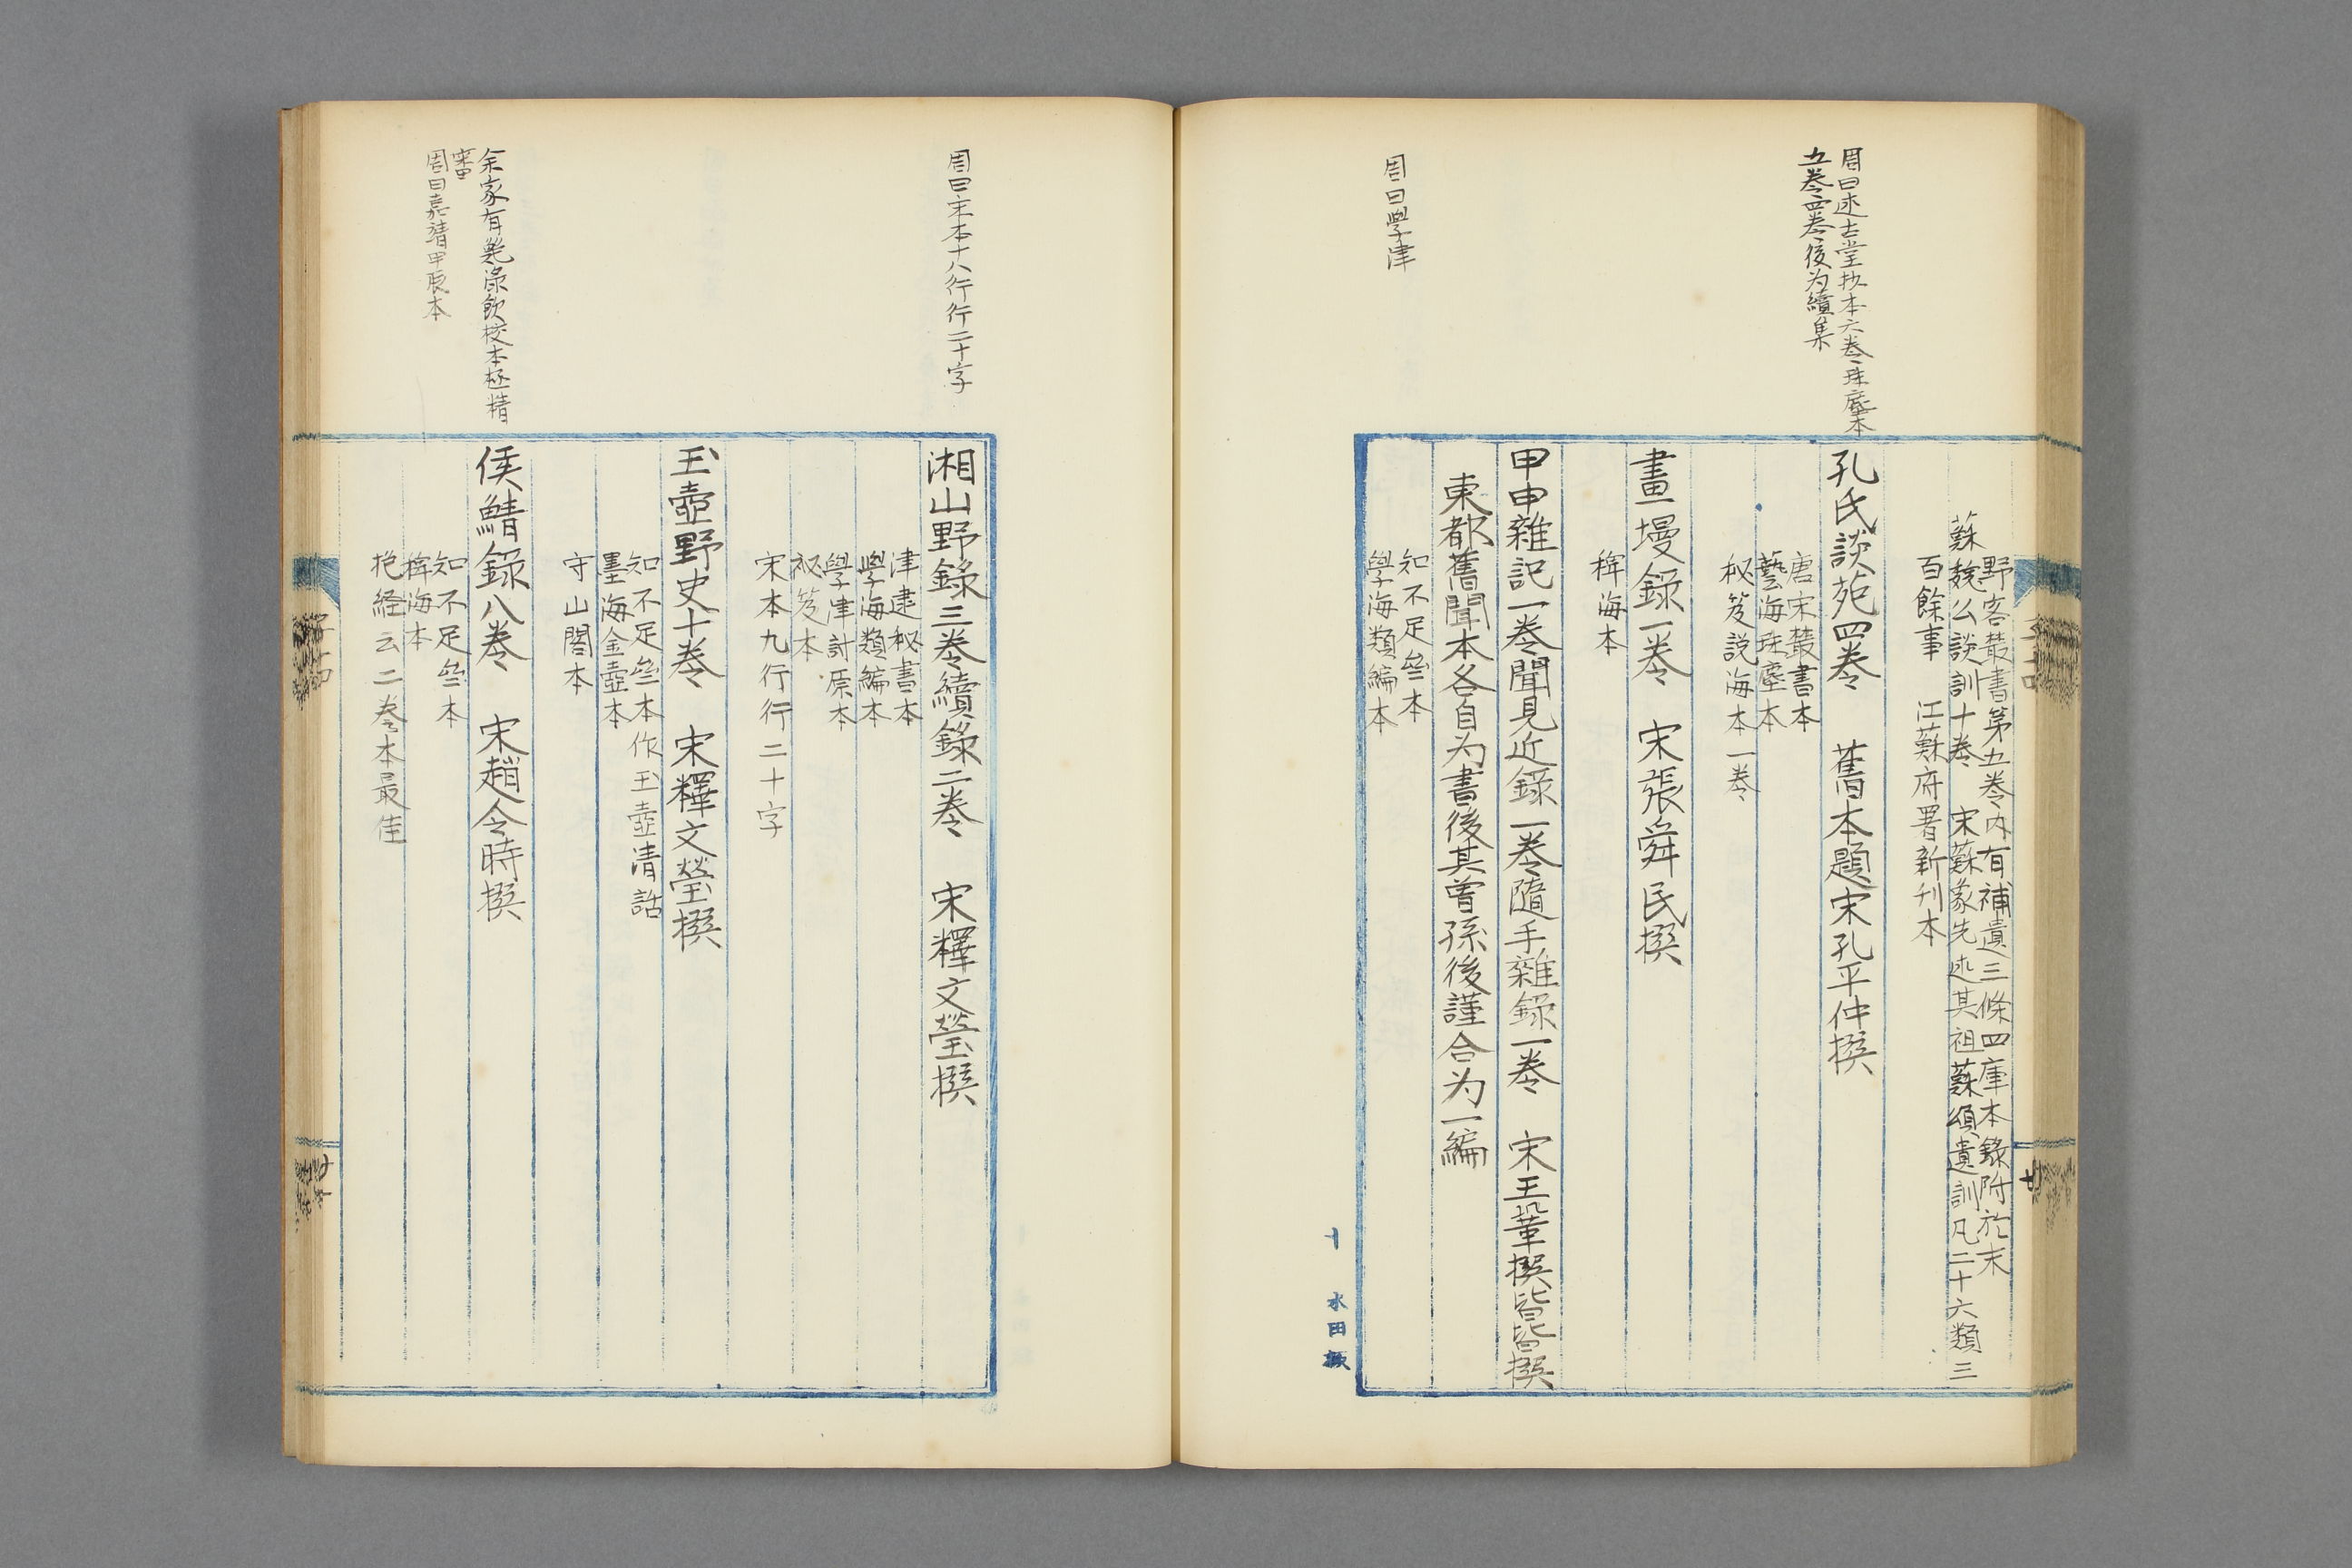 周曰述古堂抄本六卷珠塵本
五卷四卷後为續集
周曰學津
野客叢書第五卷内有補遺三條四庫本錄附於末
蘇魏公談訓十卷　宋蘇象先述其祖蘇頌遺訓凡二十六類三
百餘事　江蘇府署新刋本
孔氏談苑四卷　舊本題宋孔平仲撰
唐宋叢書本
藝海珠塵本
秘笈説海本一卷
畫墁錄一卷　宋張舜民撰
稗海本
甲申雜記一卷聞見近錄一卷隨手雜錄一卷　宋王鞏撰皆皆撰
東都舊聞本各自为書後其曾孫後謹合为一編
知不足叄本
學海類編本
周曰宋本十八行行二十字
余家有鮑淥飲校本極精
審
周曰嘉靖甲辰本
湘山野錄三卷續錄二卷　宋釋文瑩撰
津逮秘書本
學海類編本
學津討原本
秘笈本
宋本九行行二十字
玉壺野史十卷　宋釋文瑩撰
知不足叄本作玉壺清話
墨海金壺本
守山閣本
侯鯖錄八卷　宋趙令時撰
知不足叄本
稗海本
抱経云二卷本最佳